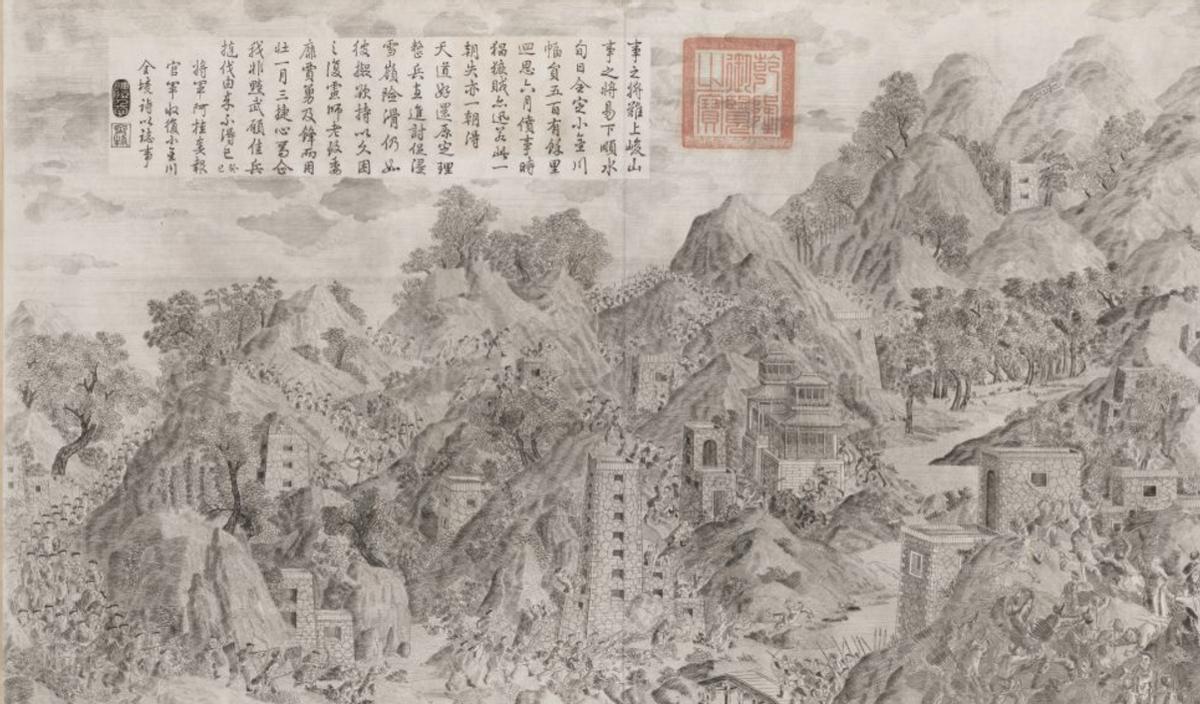 事之將難上峻山
事之將易下順水
旬日全定小金川
幅員五百有餘里
迴思六月僨事時
猖獗賊亦迅若此一
朝失亦一朝得
天道好還原定理
整兵直進討促浸
雪嶺險滑仍如
彼欲持以久困
之復虞師老致委
靡賈勇及鋒而用
壯一月三捷心
我非黷武願佳兵
撻伐由來不得已 癸巳
將軍阿桂奏報
官軍收復小金川
全境詩以誌事
乾隆御覽之寶